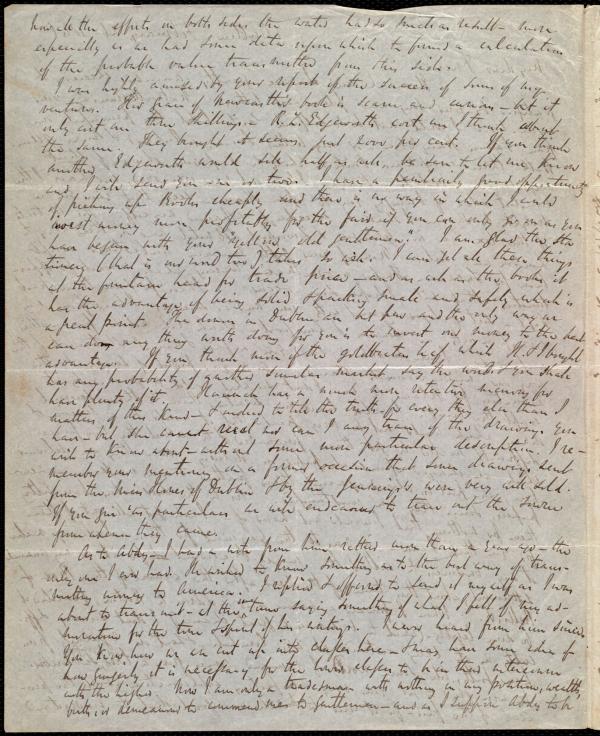 how all the efforts on both sides the water had so much as result - more
especially as we had some data upon which to found a calculation
of the probable value transmitted from this side.
I was highly amused by your report of the success of some of my
ventures. His Grace of Newcastle's book is scarce and curious - but it
only cost me three shillings - R. L. Edgeworth cost me I think about
the same. They brought it seems just 200 per cent. If you think
another Edgeworth would sell half as well, be sure to let me know
and I will send you one or two. I have a peculiarly good opportunity
of picking up Books cheaply and there is no way in which I could
invest money more profitably for the fair if you can only go on as you
have begun with your "yellow old gentlemen". I am glad the
(that is one word two) takes so well. I can get all these things
at the fountain head for trade price - and as well as the books it
has the advantage of being solid & packing small and safely which is
a great point. The demon in Dublin is her and the only way we
can do any thing worth doing for you is to invest our money to the best
advantage. If you think more of the goldbeaters leaf which H. & I bought
has any probability of another similar market, say the word & you shall
have plenty of it. Hannah has a much more retentive memory for
matters of this kind - & indeed to tell the truth for every thing else than I
have - but she cannot recol nor can I any team of the drawings you
wish to know about - without some more particular description. I re-
member your mentioning on a former occasion that some drawings sent
from the Miss of Dublin & by the Jennings's were very well sold.
If you give us particulars we will endeavour to trace out the source
from whence they came.
As to Abdy - I had a note from him rather more than a year ago - the
only one I ever had. He wished to know something as to the best way of trans-
mitting money to America. I replied & offered to send it myself as I was
about to transmit - at the same time saying something of what I felt of my ad-
miration for the tone & spirit of his writings. I never heard from him since.
You know how we are cut up into classes here - & may have some idea of
how gingerly it is necessary for the lower classes to be in their intercourse
with the higher. Now I am only a tradesman with nothing in my position, wealth,
birth, or demeanour to commend me to gentlemen - and as I suppose Abdy to be